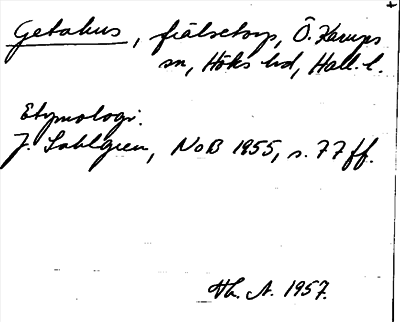 Getahus, fiälsetorp, Ö. Karups
sn, Höks hd, Hall. l.
Etymologi.
J. Sahlgren, NoB 1955, s. 77 ff.
Th. A. 1957.